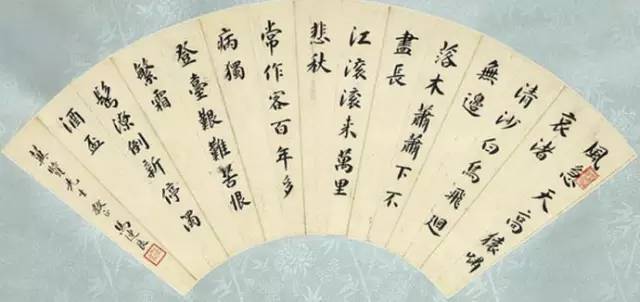 風急天高猿嘯
哀渚
清沙白鳥飛迴
無邊
落木蕭蕭下不
盡長
江滾滾來萬里
悲秋
常作客百年多
病獨
登臺艱難苦恨
繁霜
鬢潦倒新停濁
酒盃
先生